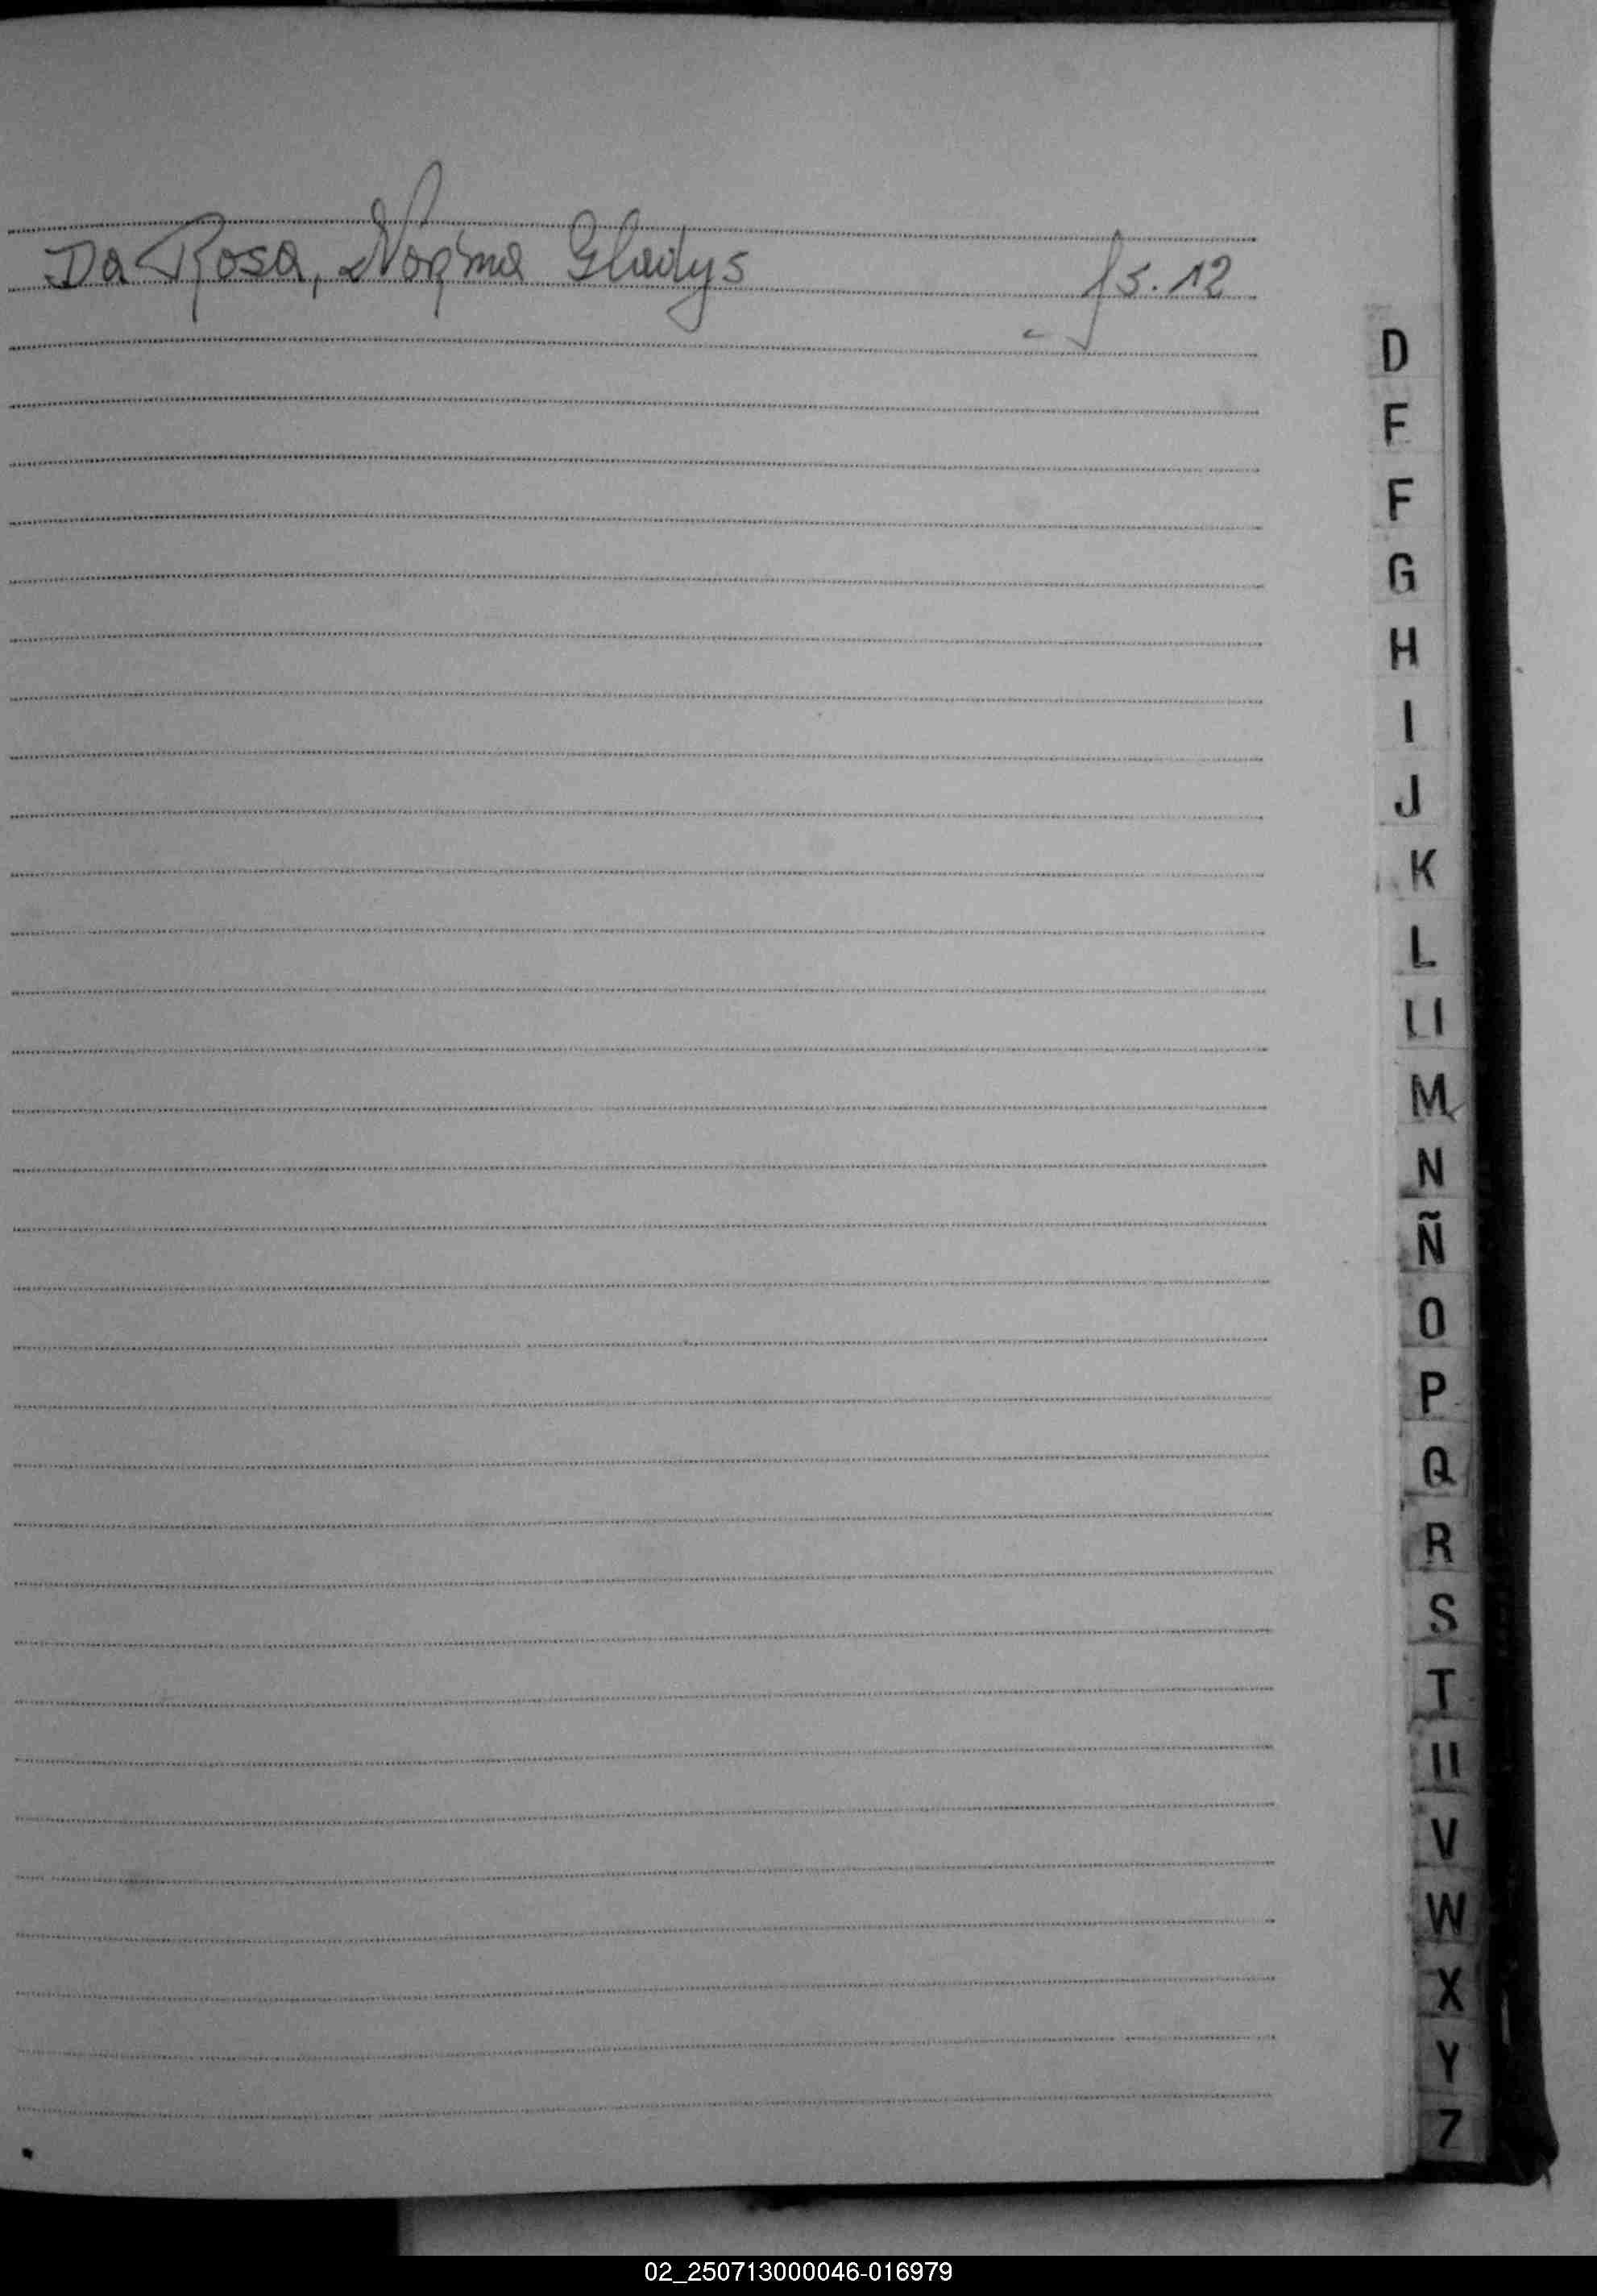 Da Rosa, Norma Gladys fs. 12
D
F
F
G
H
I
J
K
L
Ll
M
N
Ñ
O
P
Q
R
S
T
U
V
W
X
Y
Z
02_250713000046-016979